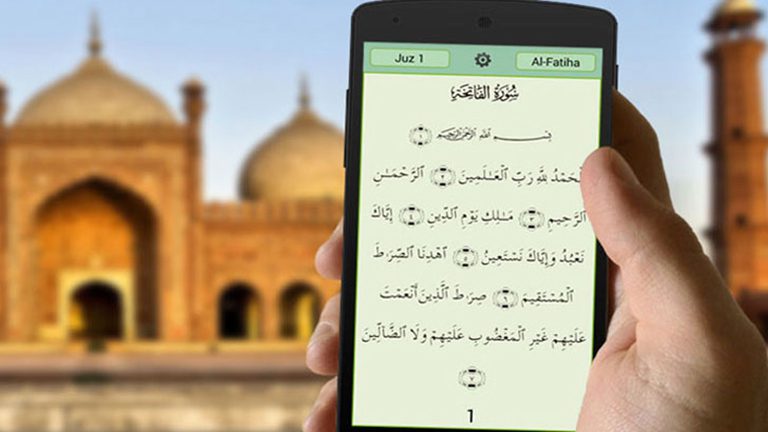 Juz 1
Al-Fatiha
سُورَةُ الفَاتِحَةِ
بِسْمِ ٱللَّهِ ٱلرَّحْمَٰنِ ٱلرَّحِيمِ ١
ٱلْحَمْدُ لِلَّهِ رَبِّ ٱلْعَٰلَمِينَ ٢ ٱلرَّحْمَٰنِ
ٱلرَّحِيمِ ٣ مَٰلِكِ يَوْمِ ٱلدِّينِ ٤ إِيَّاكَ
نَعْبُدُ وَإِيَّاكَ نَسْتَعِينُ ٥ ٱهْدِنَا ٱلصِّرَٰطَ
ٱلْمُسْتَقِيمَ ٦ صِرَٰطَ ٱلَّذِينَ أَنْعَمْتَ
عَلَيْهِمْ غَيْرِ ٱلْمَغْضُوبِ عَلَيْهِمْ وَلَا ٱلضَّآلِّينَ
٧
1